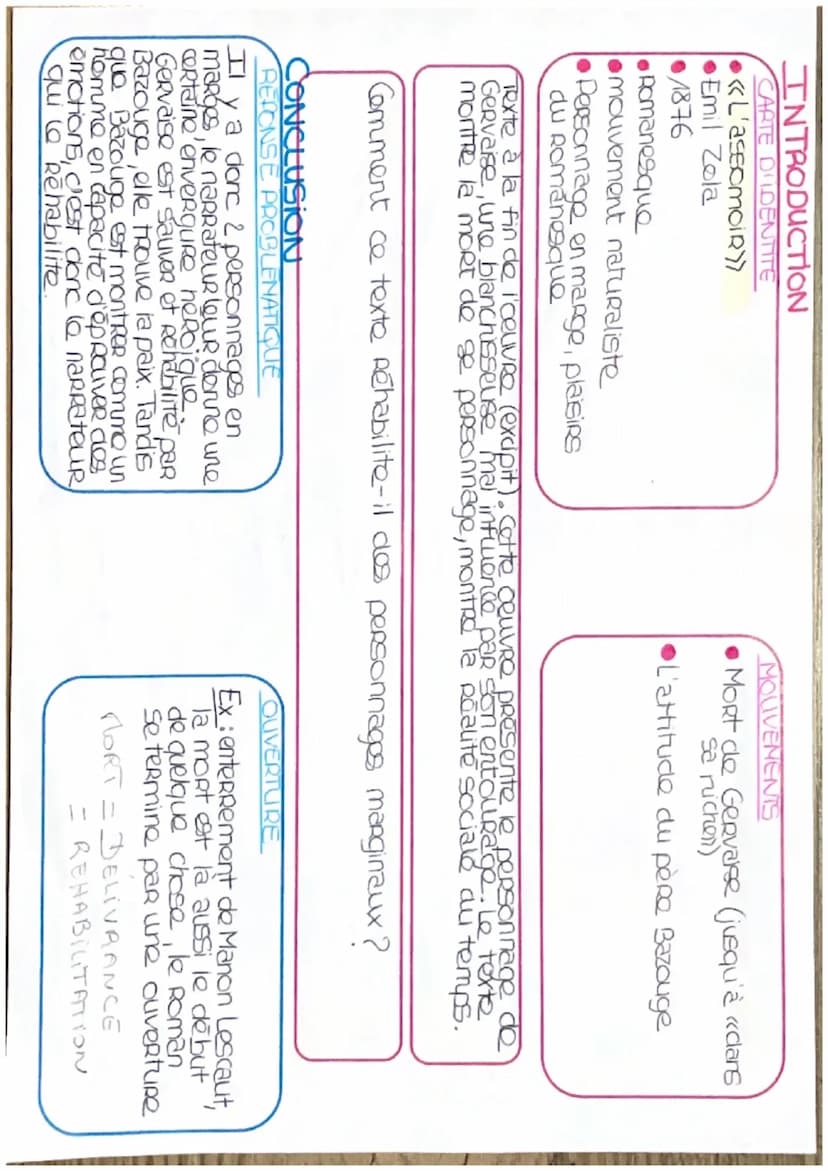 INTRODUCTION
CARTE D'IDENTITÉ
«L'assomoir»
Emil Zola
1876
Romanesque
mouvement naturaliste
Personnage en marge, plaisirs
du romanesque
MOUVEMENTS
Mort de Gervaise (jusqu'à «dans
sa niche»)
L'attitude du père Bazouge
Texte à la fin de l'œuvre (excipit). Cette œuvre présente le personnage de
Gervaise, une blanchisseuse mal influencé par son entourage. Le texte
montre la mort de se personnage, montre la réalité sociale du temps.
Comment ce texte réhabilite-il des personnages marginaux ?
CONCLUSION
RÉPONSE PROBLÉMATIQUE
Il y a donc 2 personnages en
marges, le narrateur leur donne une
certaine envergure héroïque.
Gervaise est sauver et réhabilité par
Bazouge, elle trouve la paix. Tandis
que Bazouge est montrer comme un
homme en capacité d'éprouver des
émotions, c'est donc le narrateur
qui le réhabilite.
OUVERTURE
Ex : enterrement de Manon Lescaut,
la mort est là aussi le début
de quelque chose, le roman
se termine par une ouverture
MORT = DÉLIVRANCE
= REHABILITATION